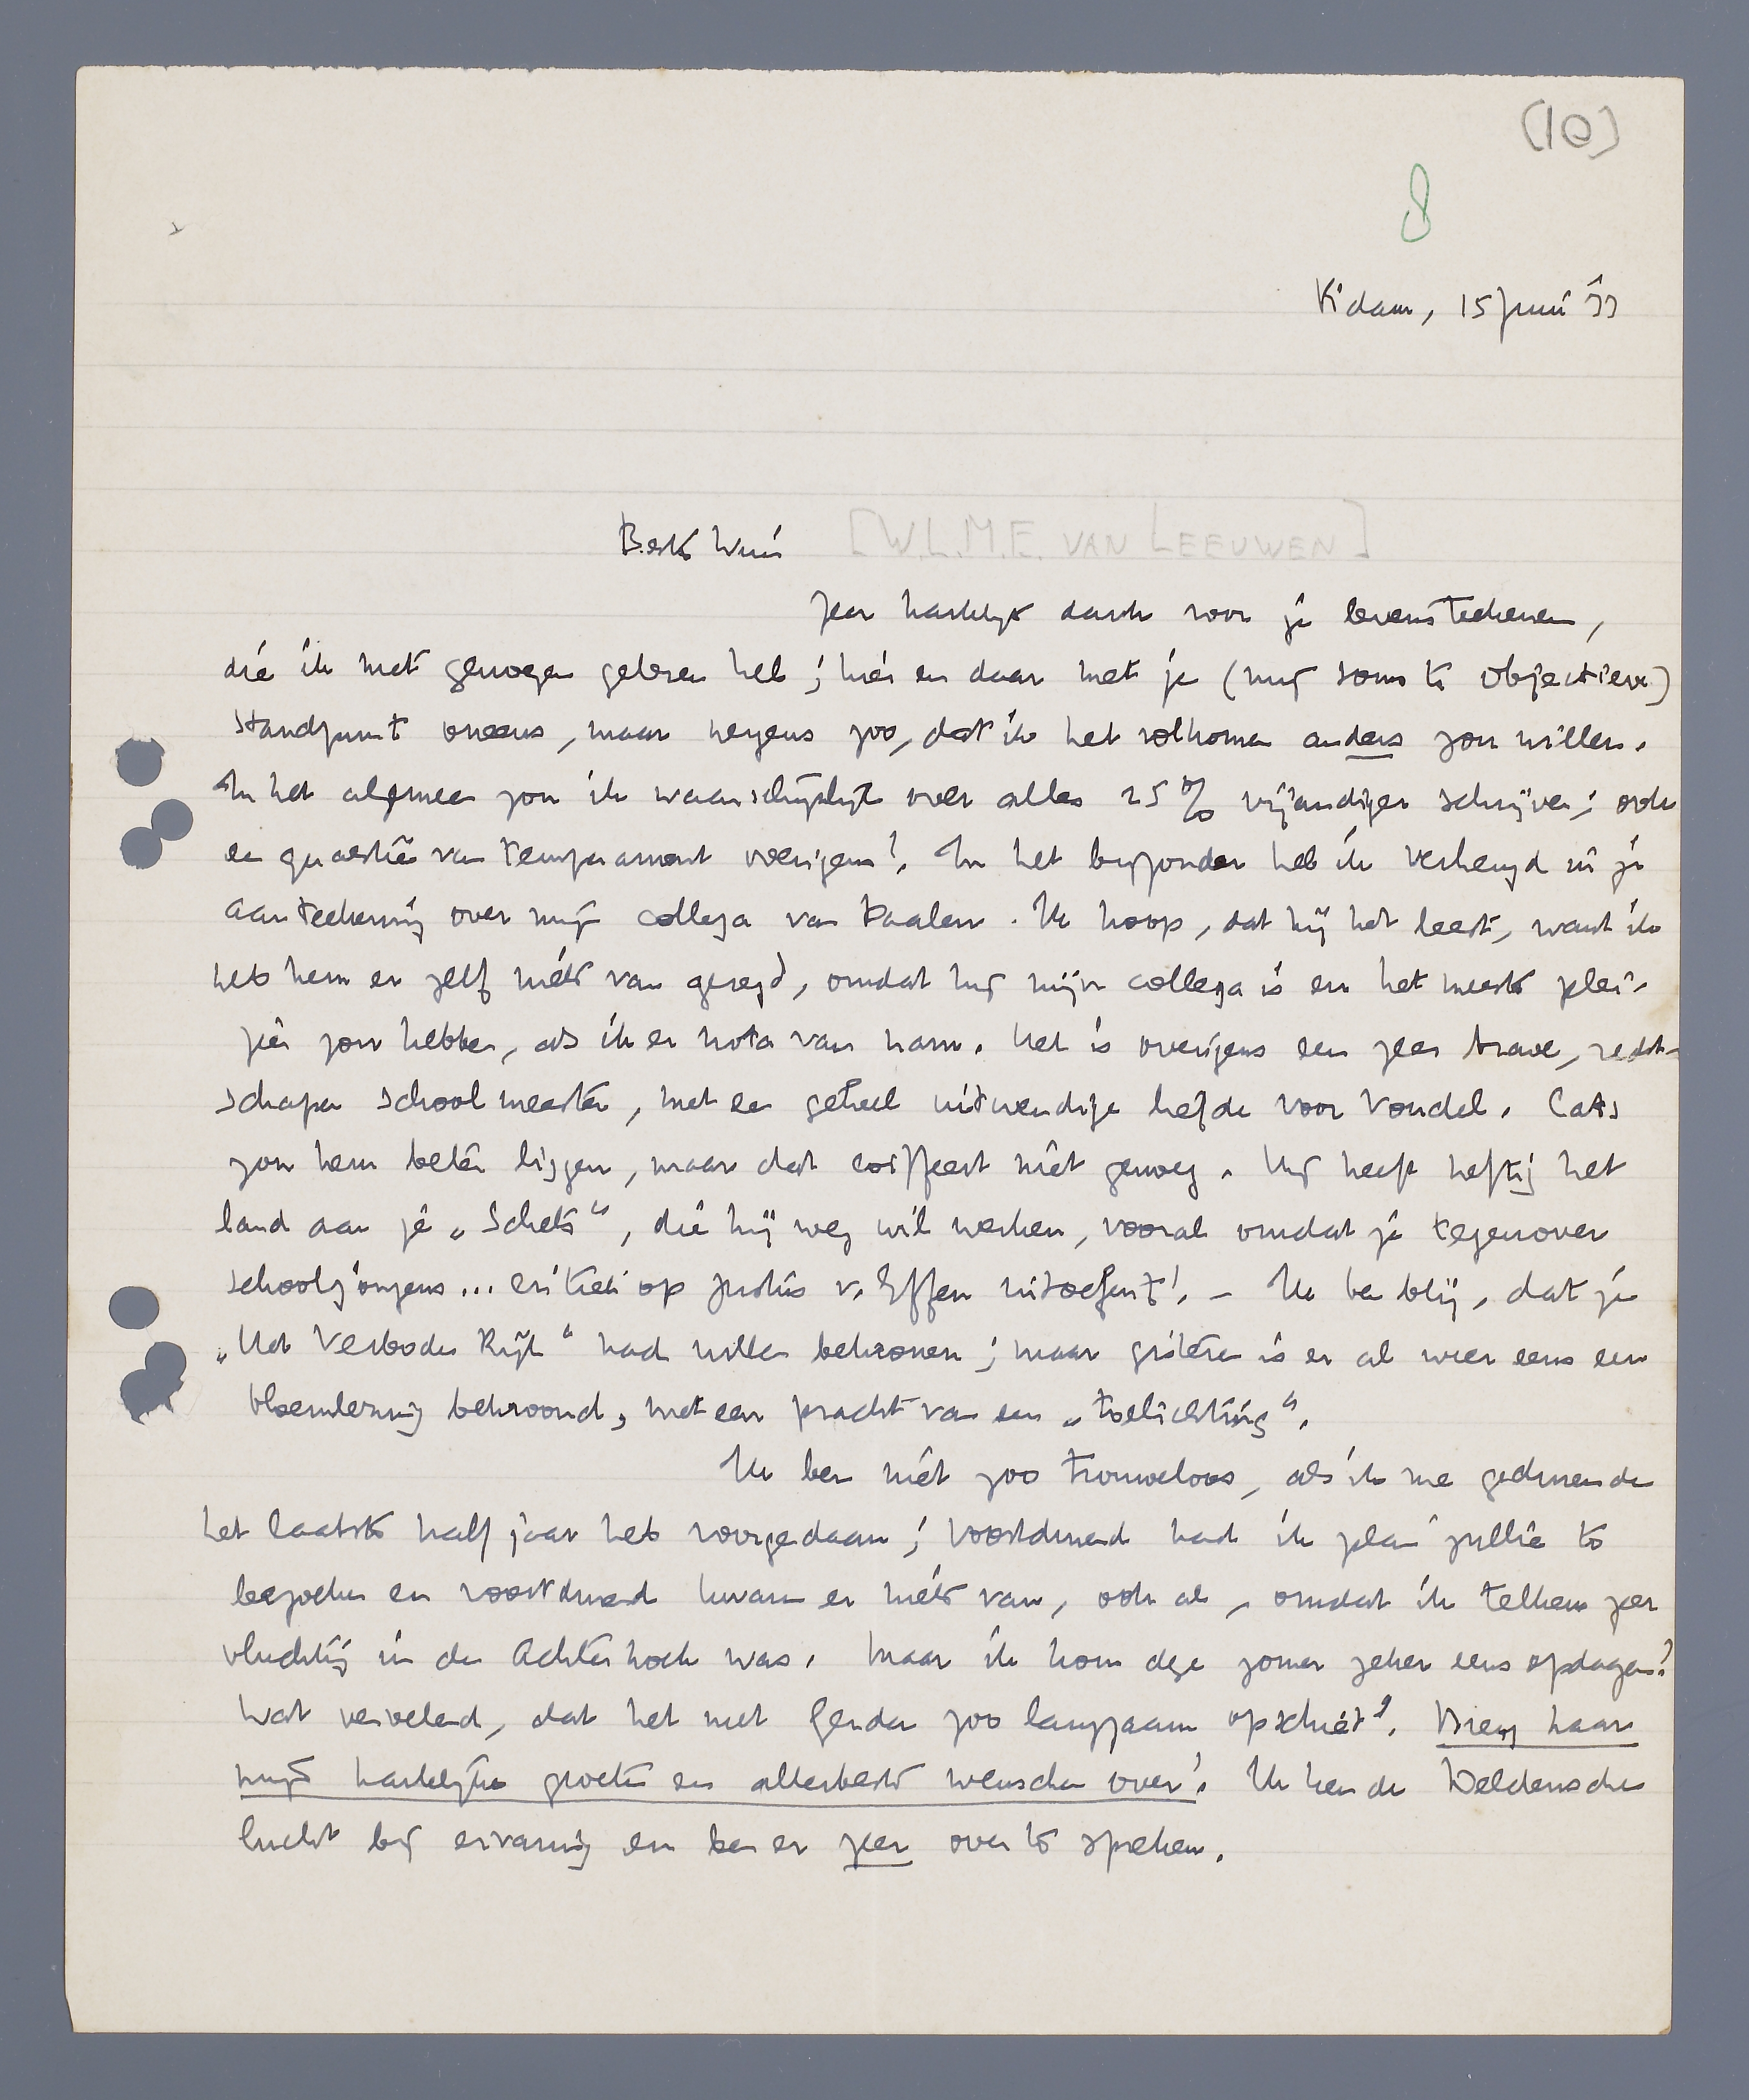 (10)
8
R'dam, 15 Juni 33
Beste Wim
[W.L.M.E. VAN LEEUWEN]
Zeer hartelijk dank voor je levensteekenen,
die ik met genoegen gelezen heb; hier en daar met je (mij soms te objectieve)
standpunt oneens, maar nergens zoo, dat ik het volkomen anders zou willen.
In het algemeen zou ik waarschijnlijk over alles 25% vijandiger schrijven; ook
een quaestie van temperament overigens! In het bijzonder heb ik verheugd in je
aanteekening over mijn collega van Haalen. Ik hoop, dat hij het leest, want ik
heb hem er zelf niets van gezegd, omdat hij mijn collega is en het meeste plei-
zier zou hebben, als ik er nota van nam. Het is overigens een zeer brave, recht-
schapen schoolmeester, met een geheel uitwendige liefde voor Vondel. Cats
zou hem beter liggen, maar dat coiffeert niet genoeg. Hij heeft heftig het
land aan je „Schets“, die hij weg wil werken, vooral omdat je tegenover
schooljongens... critiek op Justus v. Effen uitoefent! – Ik ben blij, dat je
„Het Verboden Rijk“ had willen bekronen; maar gisteren is er al weer eens een
bloemlezing bekroond, met een pracht van een „toelichting“.
Ik ben niet zoo trouweloos, als ik me gedurende
het laatste half jaar heb voorgedaan; voortdurend had ik plan jullie te
bezoeken en voortdurend kwam er niets van, ook al, omdat ik telkens zeer
vluchtig in den Achterhoek was. Maar ik kom deze zomer zeker eens opdagen!
Wat vervelend, dat het met Gerda zoo langzaam opschiet! Breng haar
mijn hartelijke groeten en allerbeste wenschen over! Ik ken de Deldensche
lucht bij ervaring en ben er zeer over te spreken.